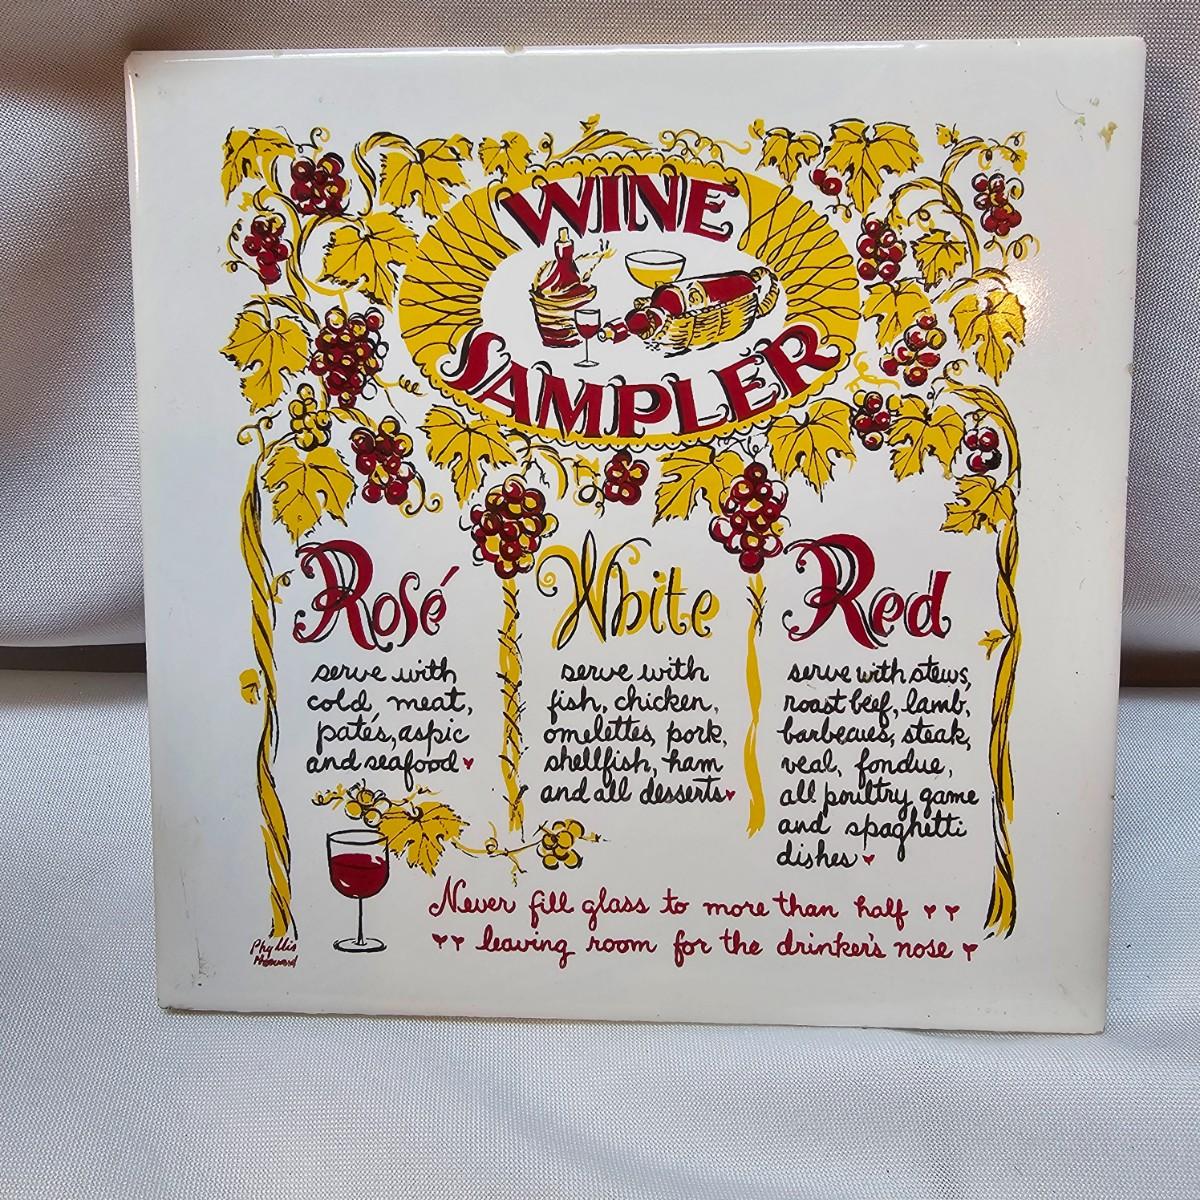 WINE
SAMPLER
Rosé
serve with
cold meat,
patés, aspic
and seafood
White
serve with
fish, chicken,
omelettes, pork,
shellfish, ham
and all desserts
Red
serve with stews,
roast beef, lamb,
barbecues, steak,
veal, fondue,
all poultry game
and spaghetti
dishes
Never fill glass to more than half
leaving room for the drinker's nose
Phyllis
Howard